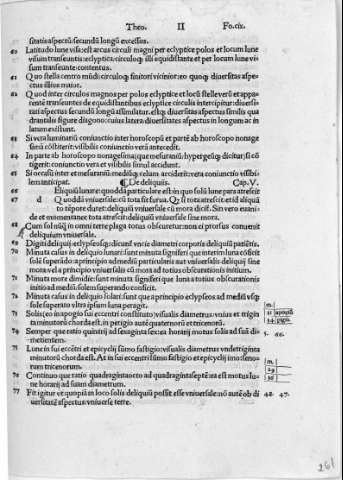 Theo. II Fo.cix.
sitatis aspectū secundū longū excessus.
60 Latitudo lune visa: est arcus circuli magni per ecliptice polos et locum lune
visum transeuntis: ecliptica: circuloqȝ illi equidistante et per locum lune vi
sum transeunte: contentus.
61 Quo stella centro mūdi: circuloqȝ finitori vicinior: eo quoqȝ diuersitas aspe-
ctus illius maior.
62 Quod inter circulos magnos per polos eclyptice et locū stelle verū et appa-
rentē transeuntes de equidistantibus eclyptice circulis intercipitur: diuersi-
tati aspectus secundū longū assimilatur. estqȝ diuersitas aspectus similis qua
drangulo figure diagonio: cuius latera diuersitates aspectus in longum: ac in
latum existunt.
63 Si vera luminariū coniunctio inter horoscopū et partē ab horoscopo nonage
simā cōtigerit: visibilis coniunctio verā antecedit.
64 In parte ab horoscopo nonagesima: que mesuraniū hypergeū dicitur: si cō
tigerit: coniunctio vera et visibilis simul accidunt.
65 Si occasū inter et mesuraniū mediūqȝ celum acciderit: vera coniunctio visibi-
lem anticipat. De deliquijs. Cap.V.
66 Eliquiū lunare: quod da particulare est: in quo solū lune pars atrescit
67 d Quoddā vniuersale: cū tota sit furua. Qȝ si tota atrescit: et id aliquā
to tēpore duret: deliquiū vniuersale cū mora dicif. Sin vero euani-
de et momentanee tota atrescit: deliquiū vniuersale sine mora.
68 Cum sol nūqȝ in omni terre plaga totus obscuretur: non ei prorsus conuenit
deliquium vniuersale.
69 Digiti deliquij eclypseosqȝ: dicunt vncie diametri corporis deliquiū patiētis.
70 Minuta casus in deliquio lunari: sunt minuta signiferi que interim luna cōficit
solē superādo: a principio ad mediū particularis aut vniuersalis deliquij sine
mora vel a principio vniuersalis cū mora ad totius obscurationis initium.
71 Minuta more dimidie: sunt minuta signiferi que luna a totius obscurationis
initio ad mediū solem superando conficit.
72 Minuta casus in deliquio solari: sunt que a principio eclypseos ad mediū vsqȝ
sole superato vltro ipsum luna peragit.
73 Solis: eo in apogio sui eccentri constituto: visualis diametrus: vnius et trigin
ta minutorū chorda est. in perigio autē quatenorū et tricenorū.
74 Semper que ratio quintorū ad sexagintasex: ea horarij motus solis ad sui di-
metientem.
75 Lune in sui eccētri et epicyclij sūmo fastigio: visualis diametrus vndetriginta
minutorū chorda est. At in sui eccentri sūmo fastigio et epicyclij imo seno-
rum tricenorum.
76 Continuo que ratio quadragintaocto ad quadragintaseptē: ea est motus lu-
ne horarij ad suam diametrum.
77 Fit igitur vt quopiā in loco solis deliquiū possit esse vniuersale: nō autē ob di
uersitatē aspectus vniuerse terre.
m.
31 apogiū
34 pigiū
5. 66.
m.
29
36
48. 47.
261